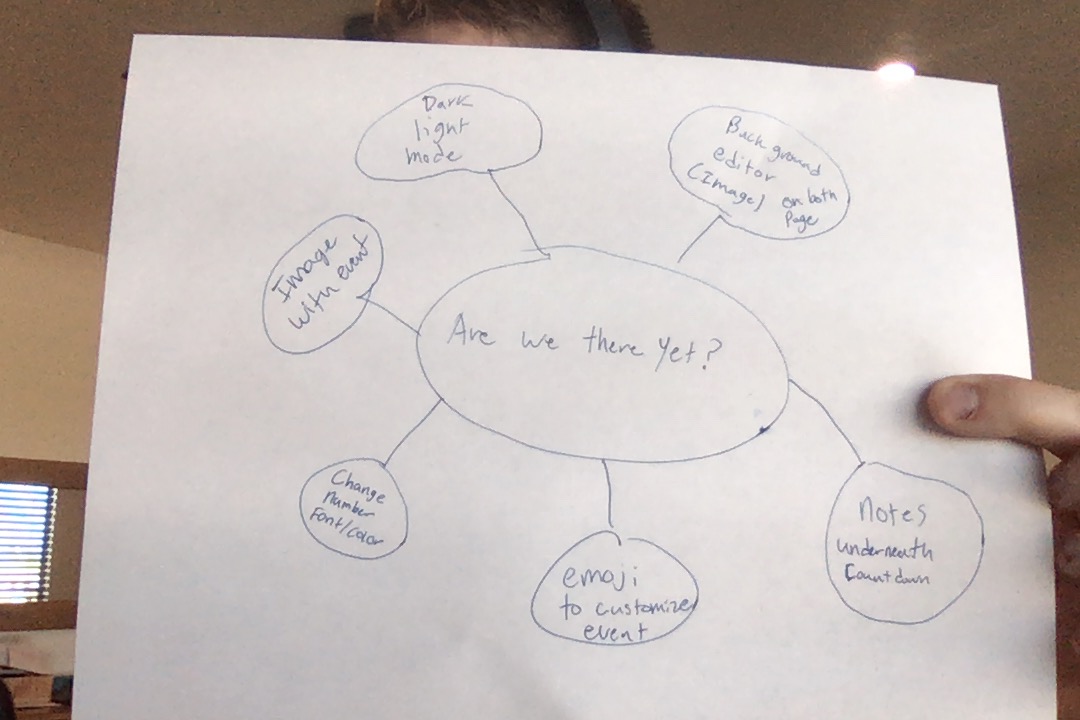 Dark
light
mode
Back ground
editor
(Image) on both
Page
Image
with event
Are we there yet?
Change
Number
Font/Color
emoji
to customize
event
notes
underneath
Countdown